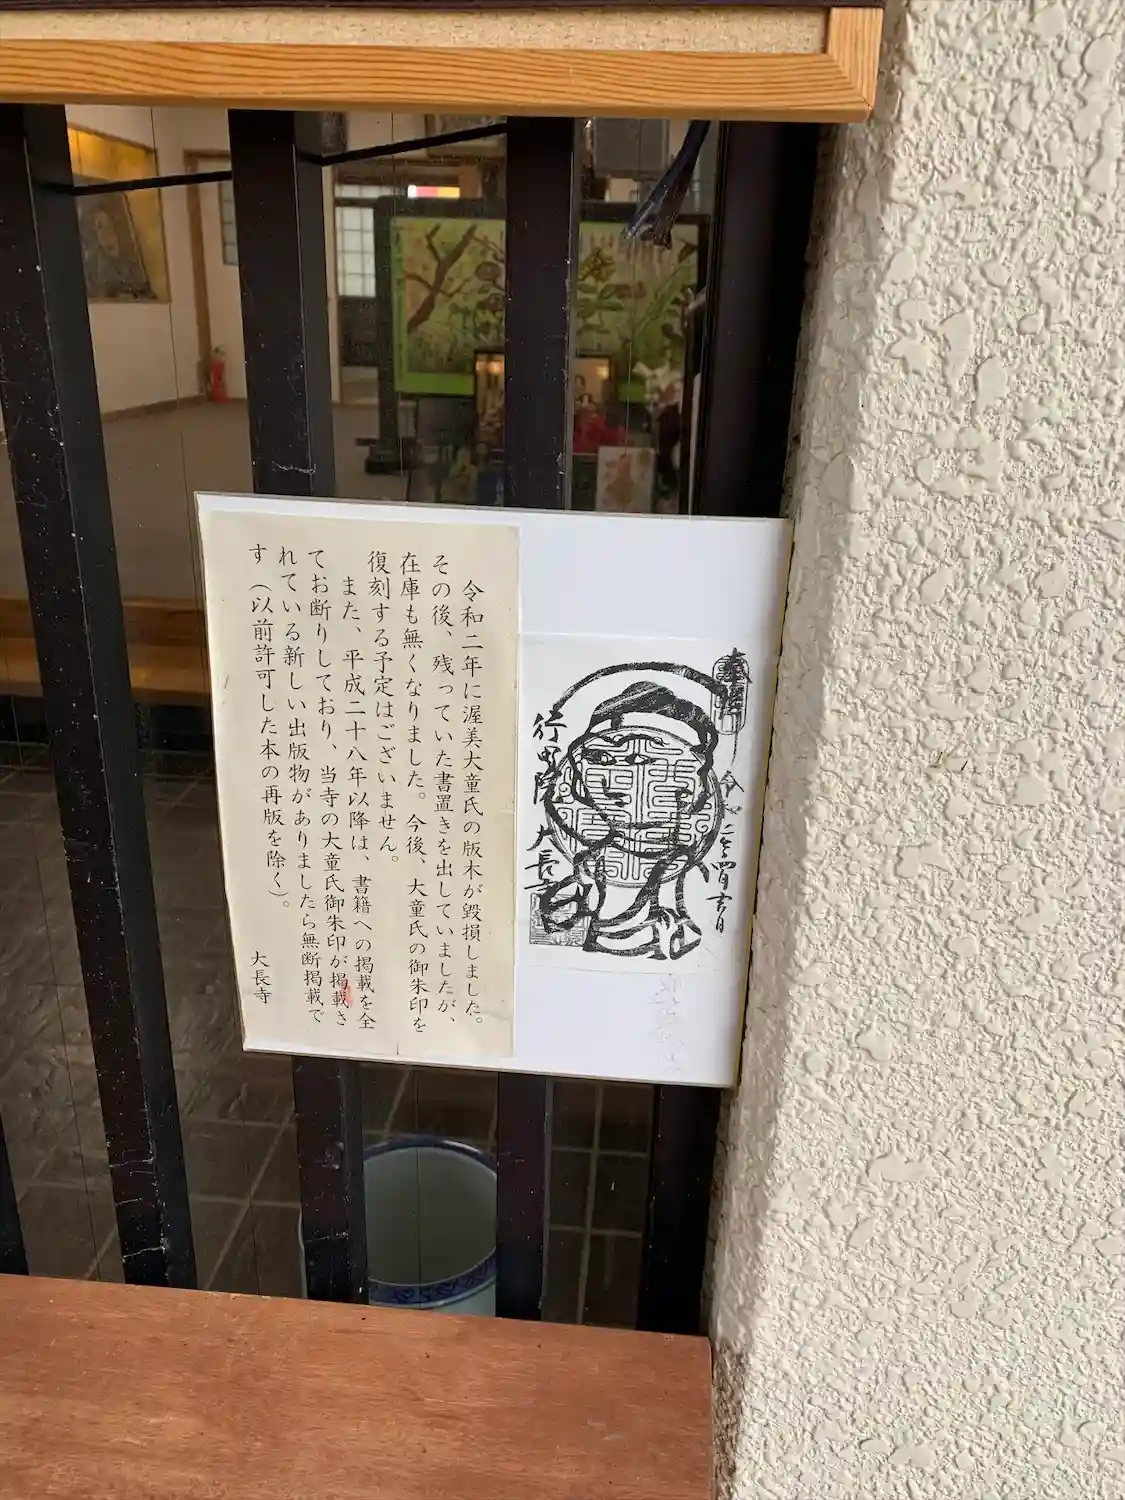 令和二年に渥美大童氏の版木が毀損しました。
その後、残っていた書置きを出していましたが、
在庫も無くなりました。今後、大童氏の御朱印を
復刻する予定はございません。
また、平成二十八年以降は、書籍への掲載を全
てお断りしており、当寺の大童氏御朱印が掲載さ
れている新しい出版物がありましたら無断掲載で
す(以前許可した本の再版を除く)。
大長寺
奉拝
令和
行田院
大長寺